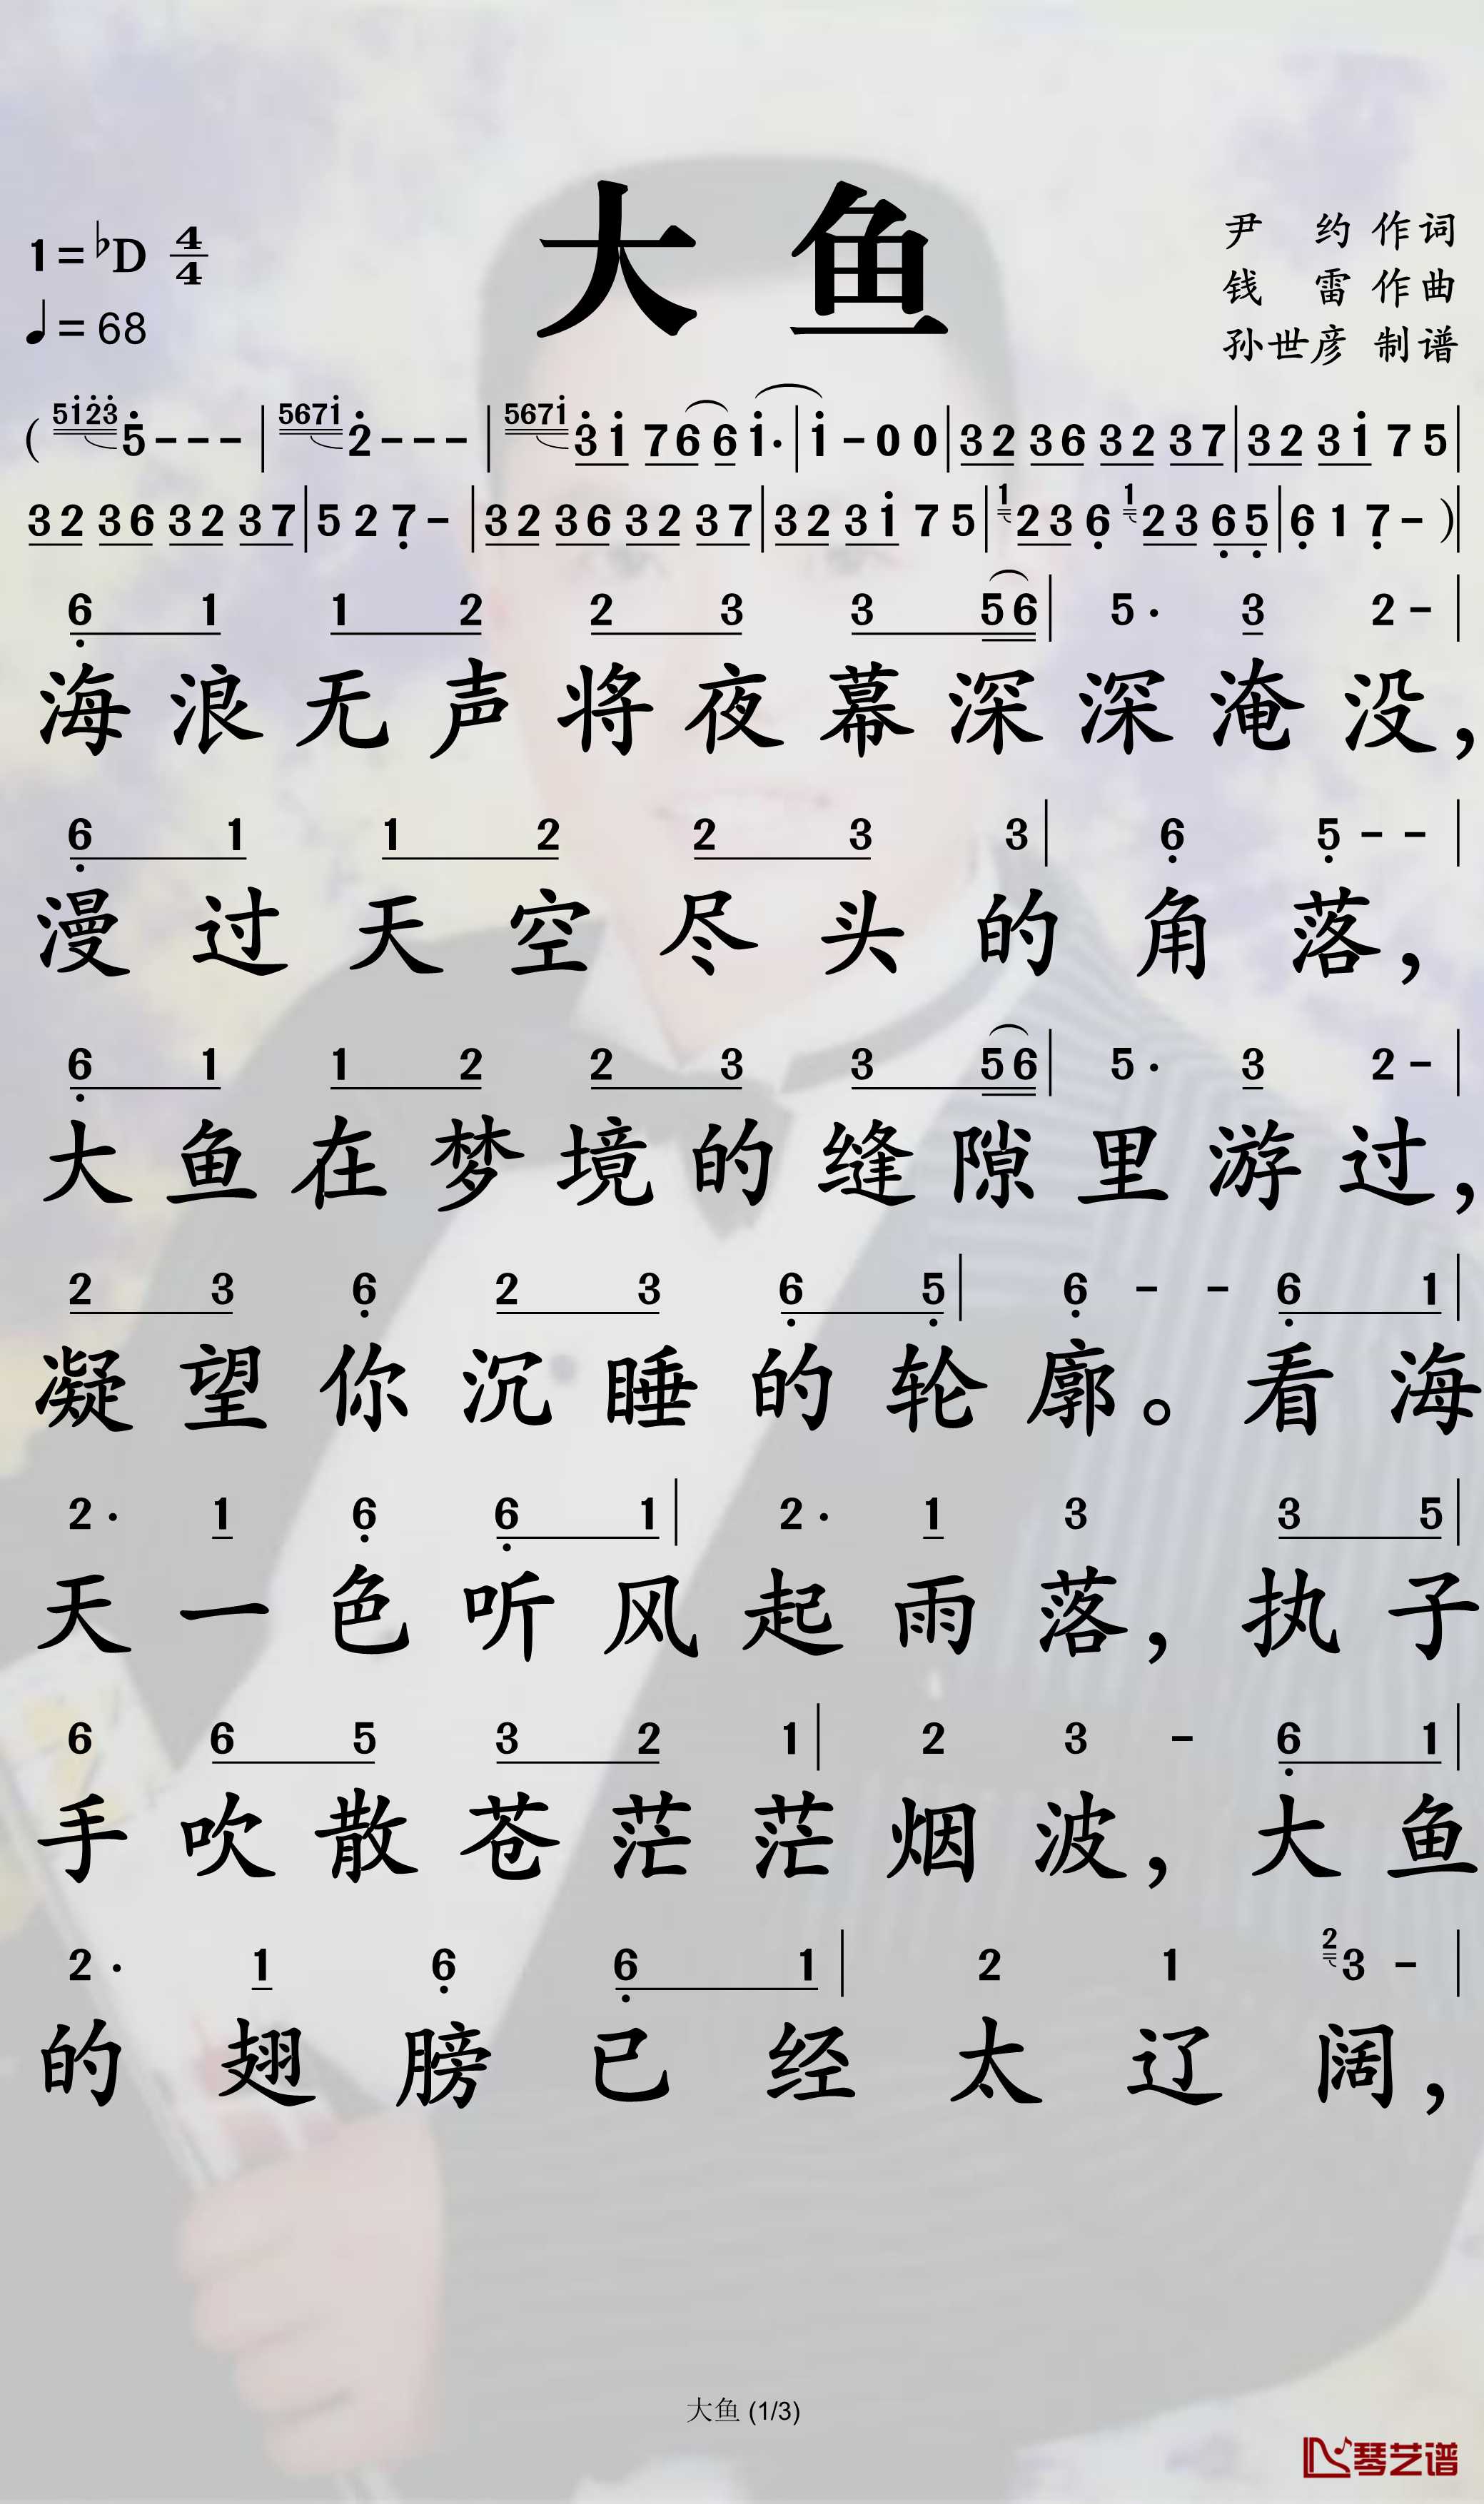 大鱼
1=♭D 4/4
♩=68
尹 约 作词
钱 雷 作曲
孙世彦 制谱
( 51̇2̇3̇ 5̇--- | 5671̇ 2̇--- | 5671̇ 3̇1̇ 76 6 1̇· | 1̇-00 | 32 36 32 37 | 32 31̇ 7 5 |
32 36 32 37 | 5 2 7̣ - | 32 36 32 37 | 32 31̇ 7 5 | 1 23 6̣ 1 23 6̣5̣ | 6̣ 1 7̣ - ) |
6̣ 1 1 2 2 3 3 56 | 5· 3 2- |
海浪无声将夜幕深深淹没，
6̣ 1 1 2 2 3 3 | 6̣ 5̣-- |
漫过天空尽头的角落，
6̣ 1 1 2 2 3 3 56 | 5· 3 2- |
大鱼在梦境的缝隙里游过，
2 3 6̣ 2 3 6̣ 5̣ | 6̣ - - 6̣ 1 |
凝望你沉睡的轮廓。看海
2· 1 6̣ 6̣ 1 | 2· 1 3 3 5 |
天一色听风起雨落，执子
6 6 5 3 2 1 | 2 3 - 6̣ 1 |
手吹散苍茫茫烟波，大鱼
2· 1 6̣ 6̣ 1 | 2 1 2 3- |
的翅膀已经太辽阔，
大鱼 (1/3)
琴艺谱